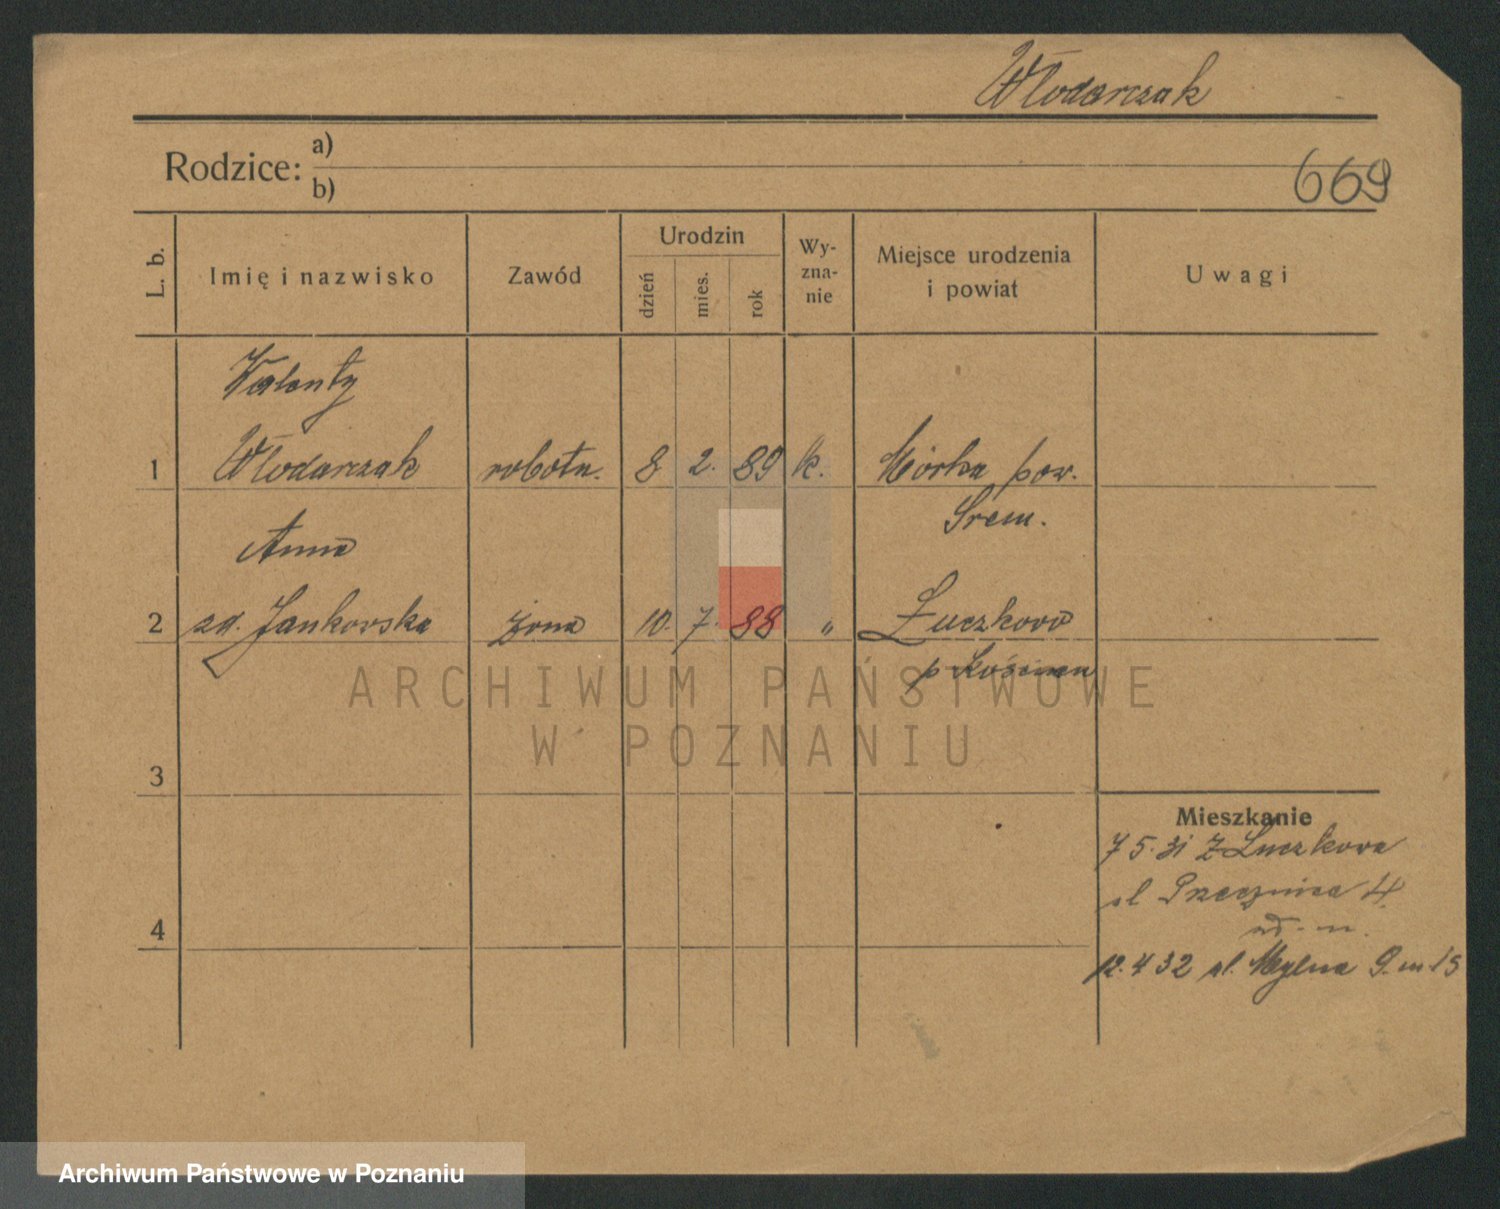 Włodarczak
Rodzice: a)
b)
669
L. b.
Imię i nazwisko
Zawód
Urodzin
dzień
mies.
rok
Wy-
zna-
nie
Miejsce urodzenia
i powiat
Uwagi
Walenty
1 Włodarczak robotn. 8 2. 89 k. Mórka pow.
Śrem.
Anna
2 Jankowska żona 10. 7. 88 „ Łuczkowo
p Kościan
3
Mieszkanie
7 5. 31 Z Łuczkowa
ul 4
4
12.4 32 ul. Mylna 9. m. 15
ARCHIWUM PAŃSTWOWE
W POZNANIU
Archiwum Państwowe w Poznaniu